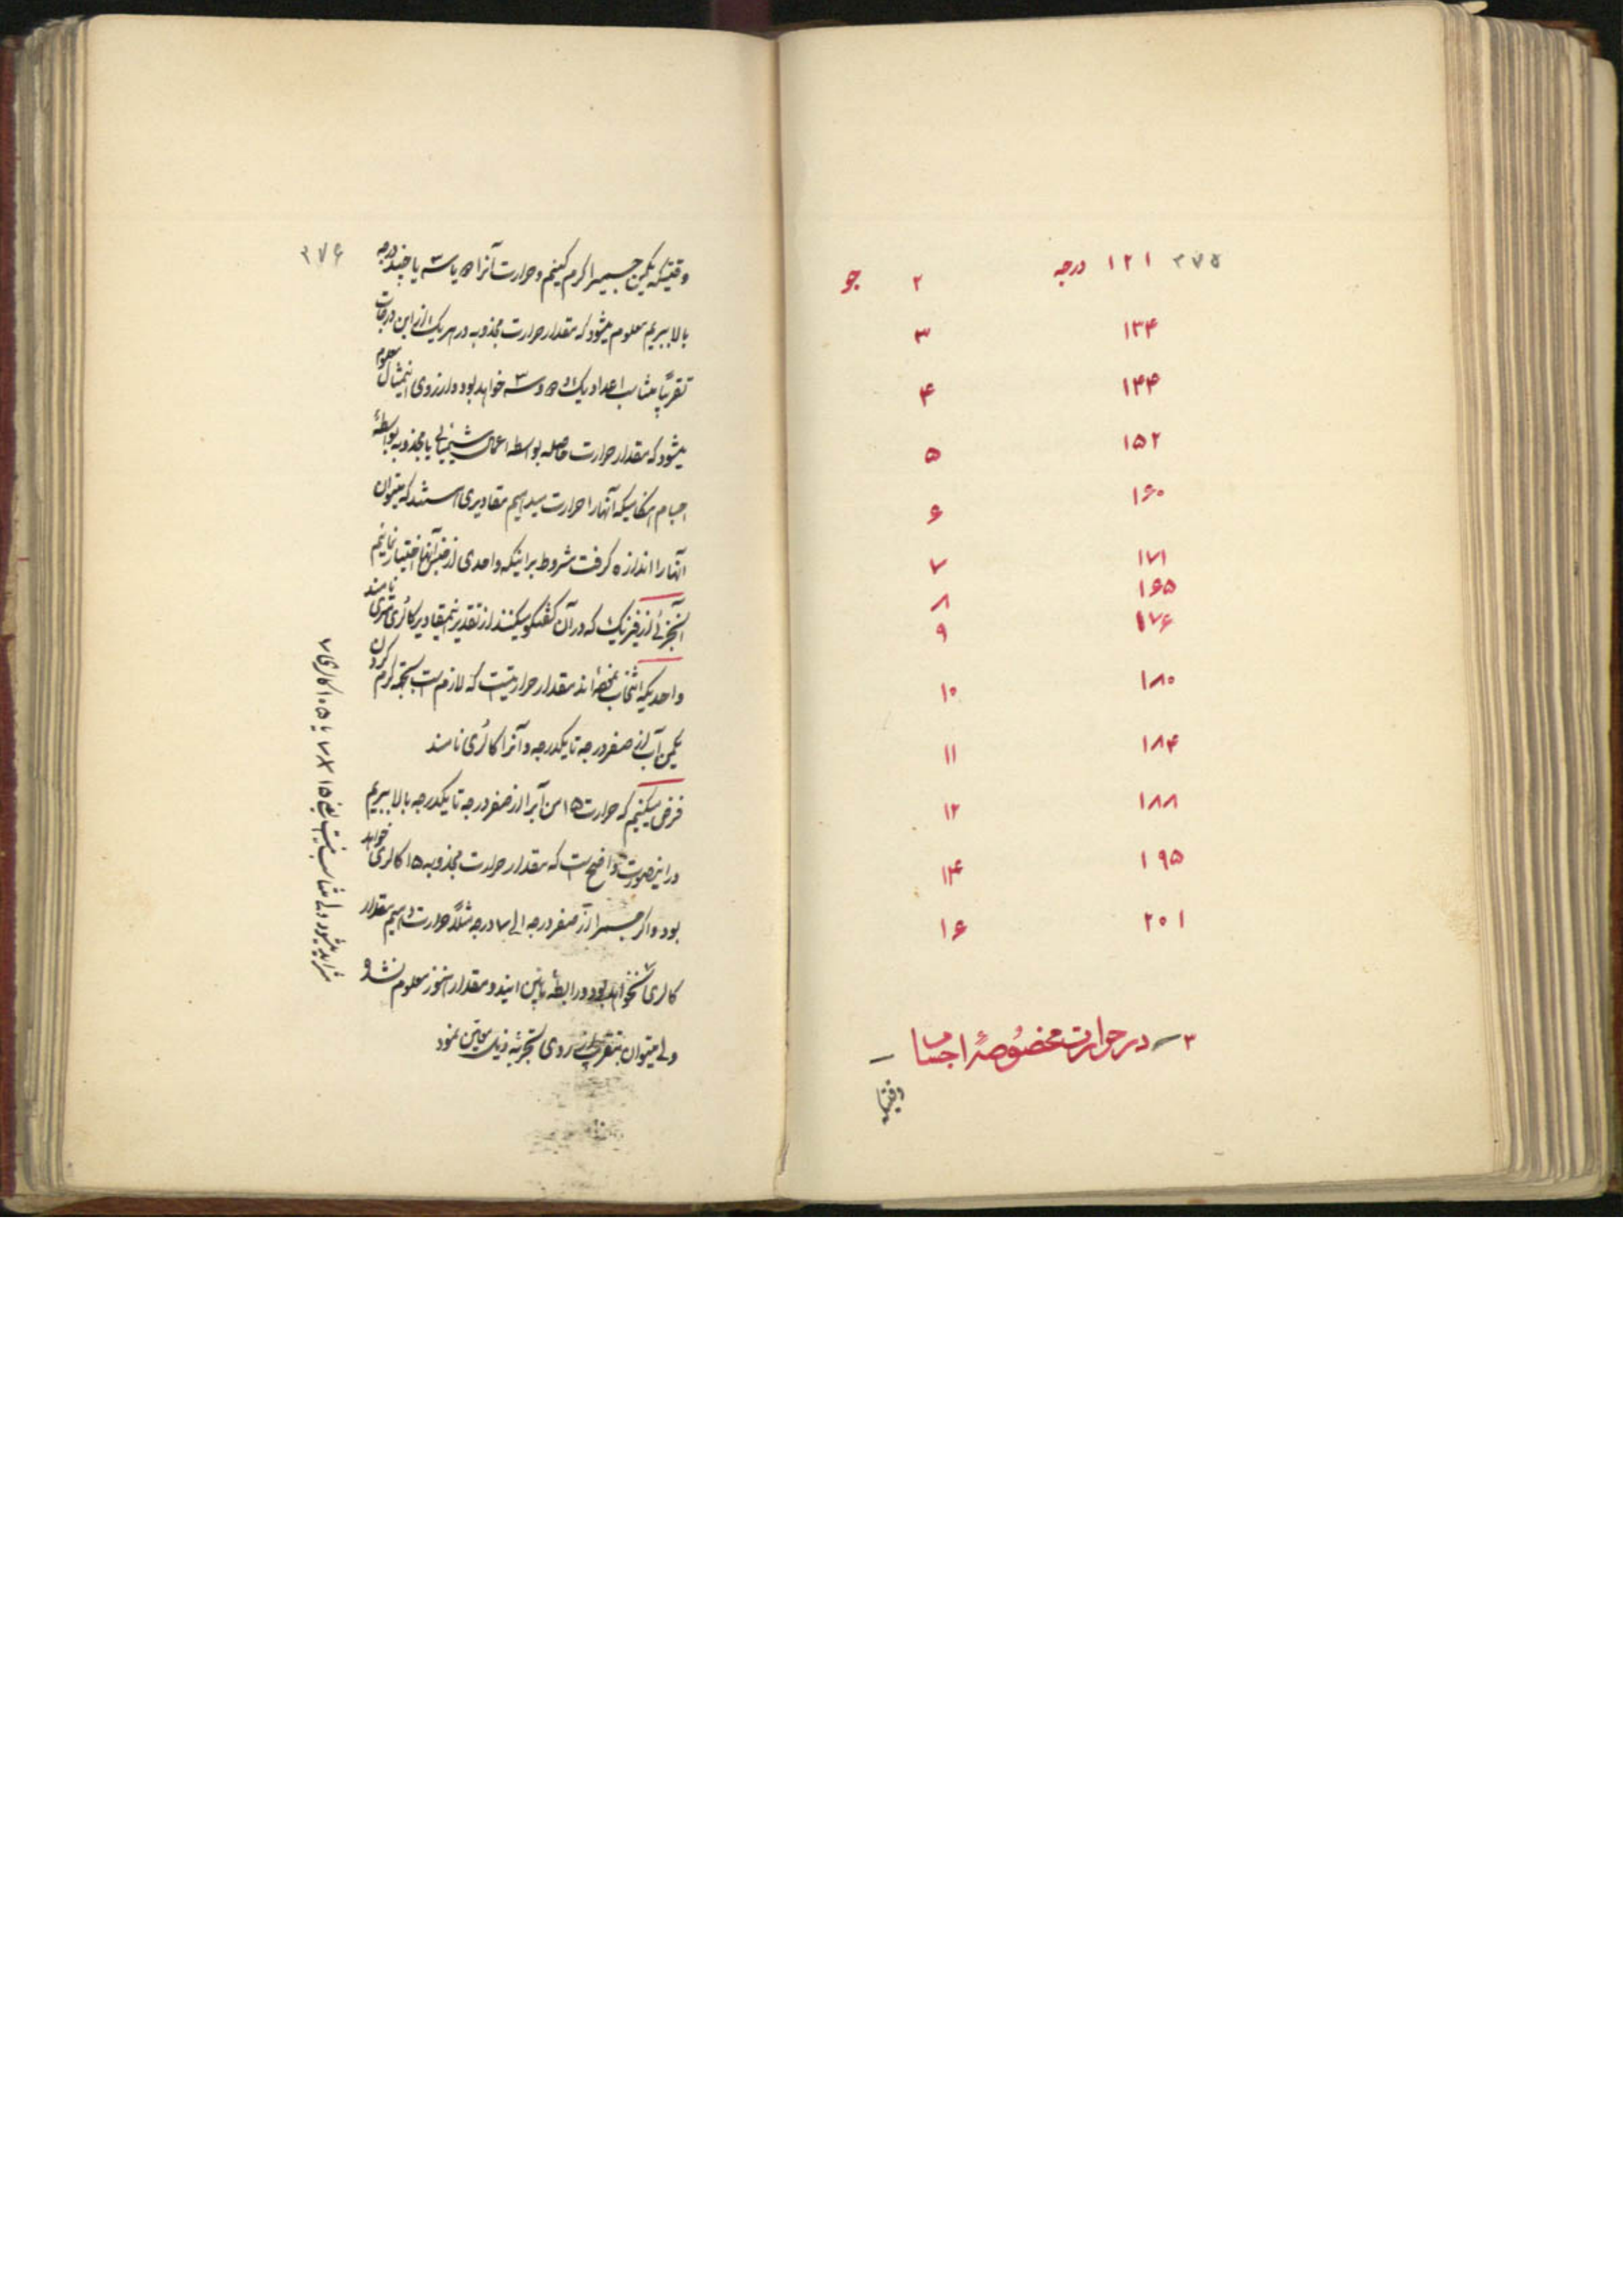 ۲۷۵
۱۲۱ درجه ۲ جو
۱۳۴ ۳
۱۴۴ ۴
۱۵۲ ۵
۱۶۰ ۶
۱۷۱ ۷
۱۶۵ ۸
۱۷۶ ۹
۱۸۰ ۱۰
۱۸۴ ۱۱
۱۸۸ ۱۲
۱۹۵ ۱۴
۲۰۱ ۱۶
۳ــ در حرارت مخصوصهٔ اجسام ــ
وقتیکه
۲۷۶
وقتیکه یکمن جسمیرا کرم کنیم و حرارت آنرا ۲ یا ۳ یا چند درجه
بالا ببریم معلوم میشود که مقدار حرارت مجذوبه در هریک از این درجات
تقریباً متناسب اعداد یک و ۲ و ۳ خواهد بود و از روی اینمثال معلوم
میشود که مقدار حرارت حاصله بواسطه اعمال شیمیائی یا مجذوبه بواسطهٔ
اجسام هنکامیکه آنها را حرارت میدهیم مقادیری هستند که میتوان
آنها را اندازه کرفت مشروط بر اینکه واحدی از جنس آنها اختیار نمائیم
آنجزئی از فیزیک که در آن کفتکو میکنند از تقدیر اینمقادیر کالری‌متری نامند
واحدیکه انتخاب نموده‌اند مقدار حرارتیست که لازم است بجهة کرم کردن
یکمن آب از صفر درجه تا یکدرجه و آنرا کالری نامند
فرض میکنیم که حرارت ۱۵ من آبرا از صفر درجه تا یکدرجه بالا ببریم
در اینصورت واضح است که مقدار حرارت مجذوبه ۱۵ کالری خواهد
بود و اکر جسم را از صفر درجه الی ۷ درجه مثلاً حرارت دهیم مقدار
کالری نخواهد بود و رابطهٔ مابین ایندو مقدار هنوز معلوم نشده
ولی میتوان بتقریب از روی تجربهٔ ذیل معین نمود